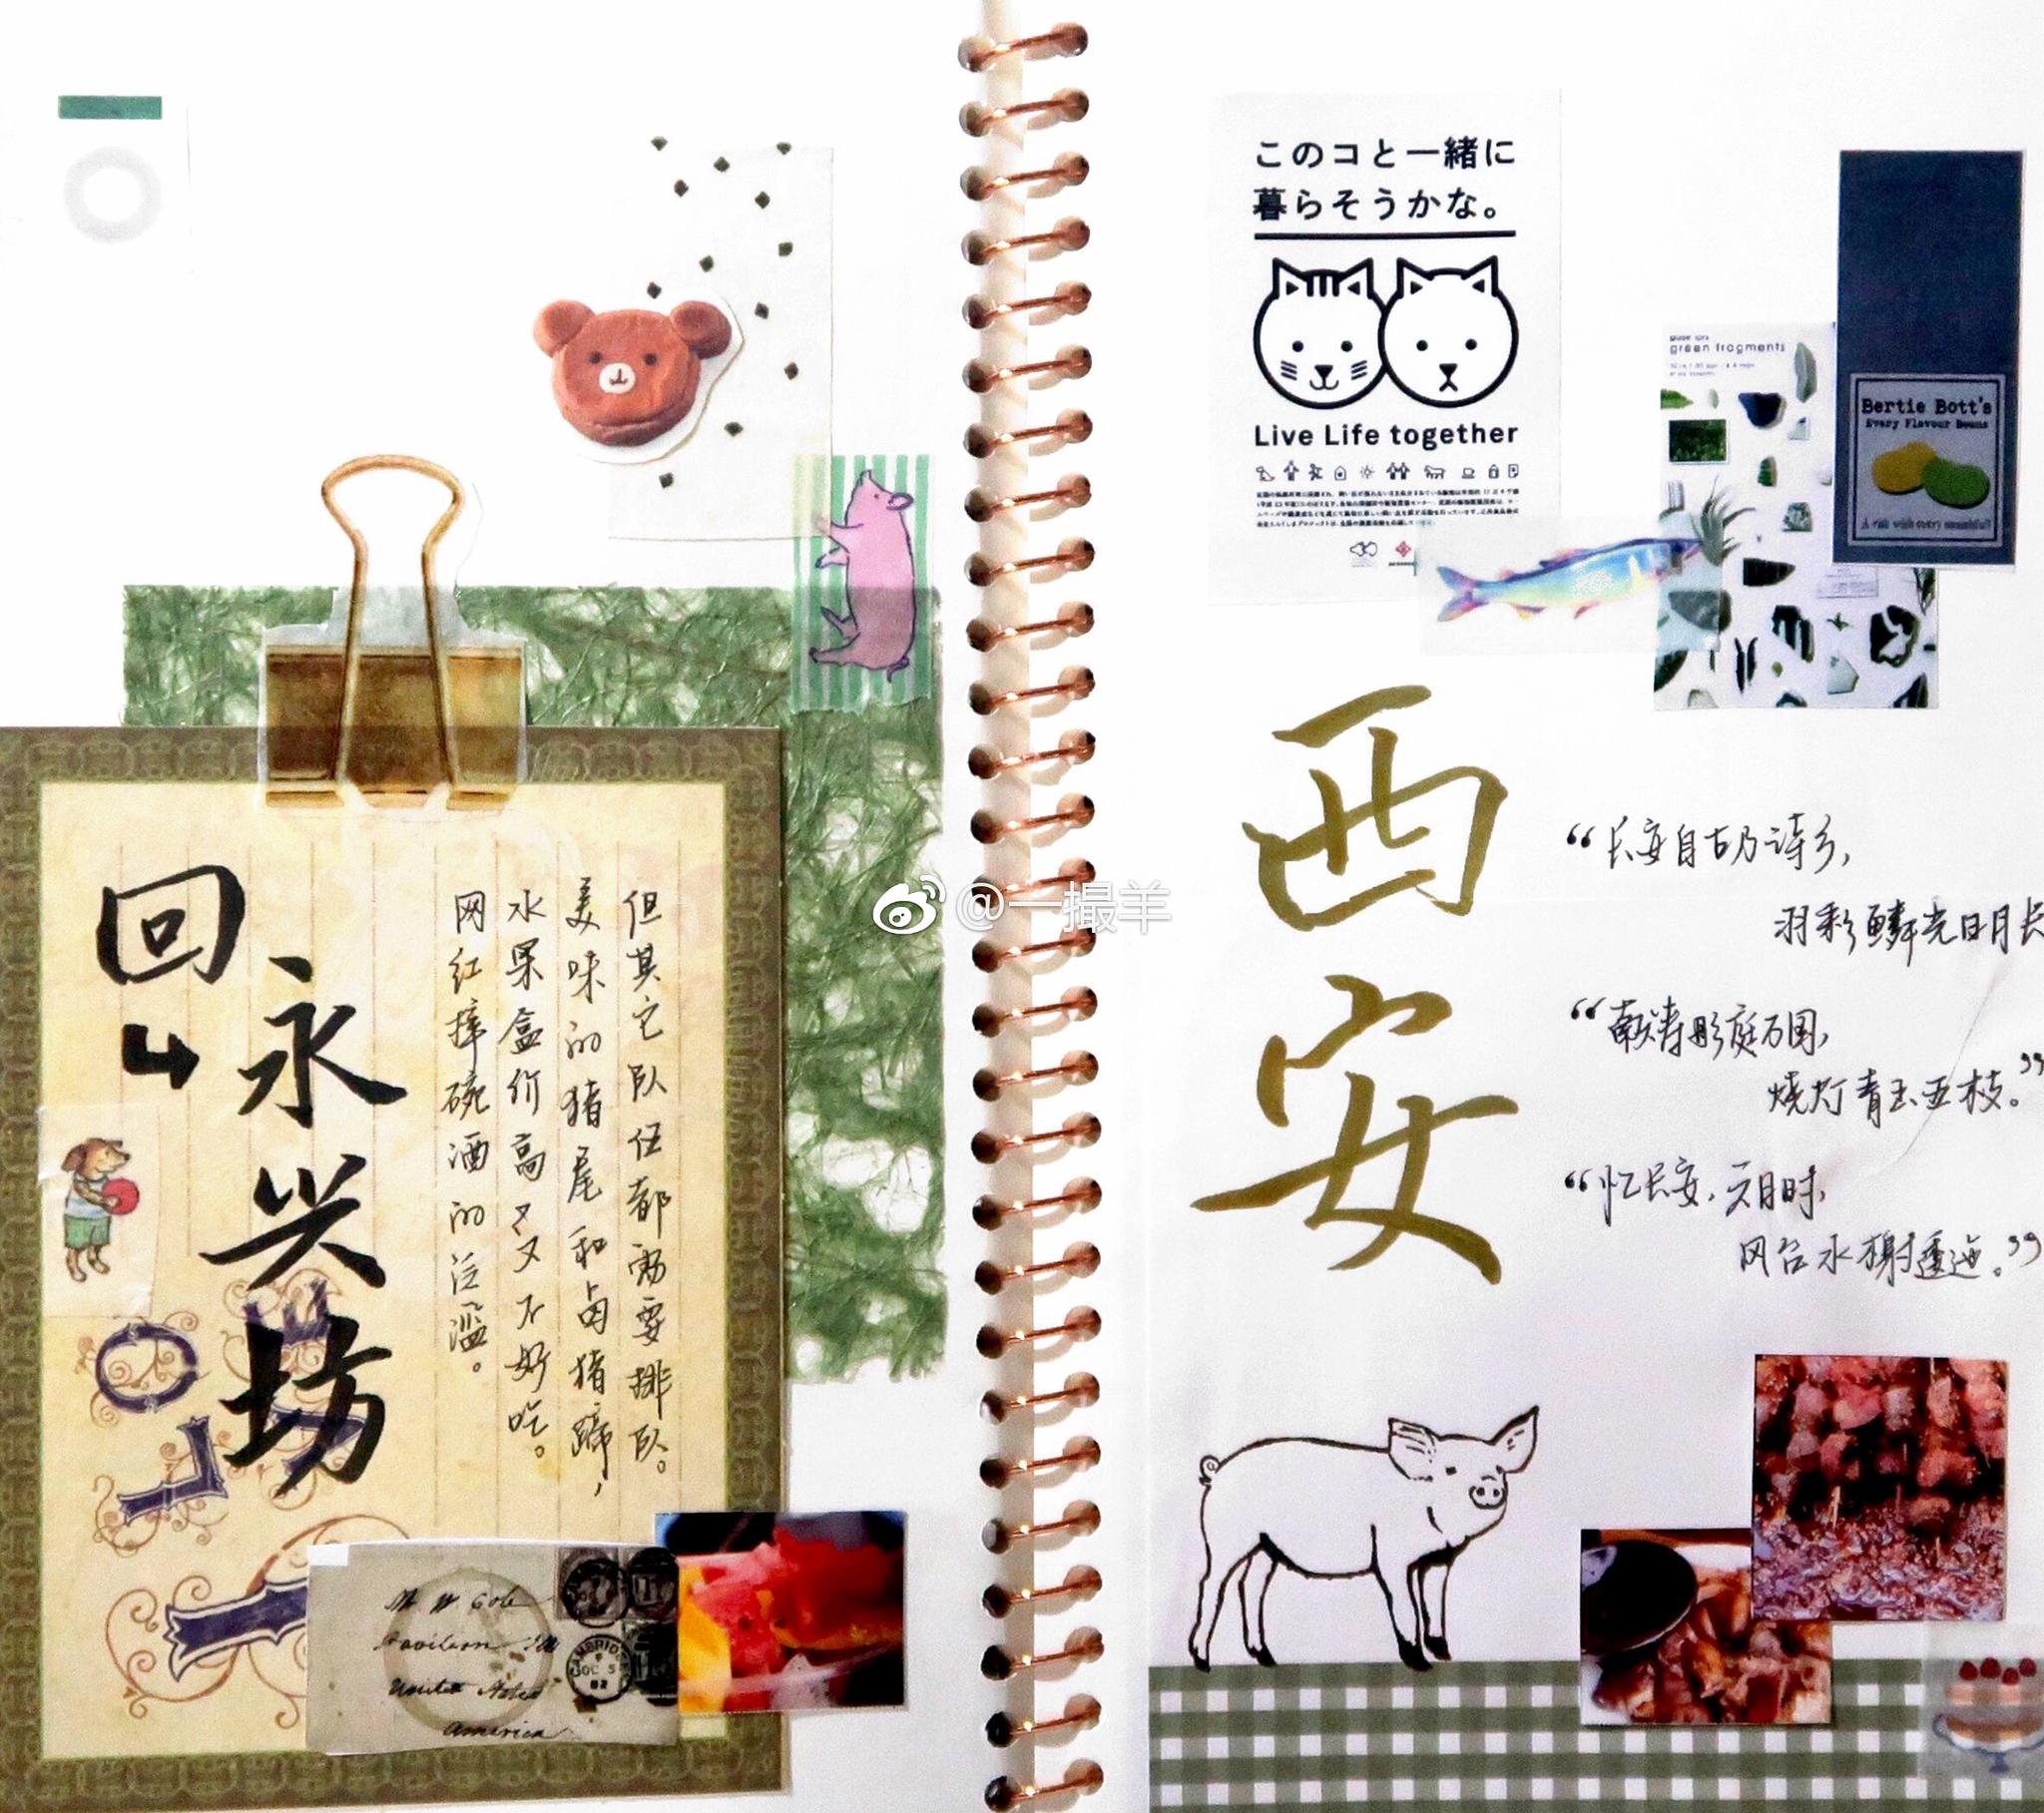 回
永兴坊
网红摔碗酒的泛滥。
水果盒价高又不好吃。
美味的猪尾和卤猪蹄，
但其它队伍都需要排队。
United States
America
CAMBRIDGE
OC 5
82
@一撮羊
このコと一緒に
暮らそうかな。
Live Life together
green fragments
Bertie Bott's
Every Flavour Beans
A risk with every mouthful!
西安
“长安自古乃诗乡，
羽彩鳞光日月长
“献寿彤庭万国，
烧灯青玉五枝。”
“忆长安，六月时，
风台水榭逶迤。”